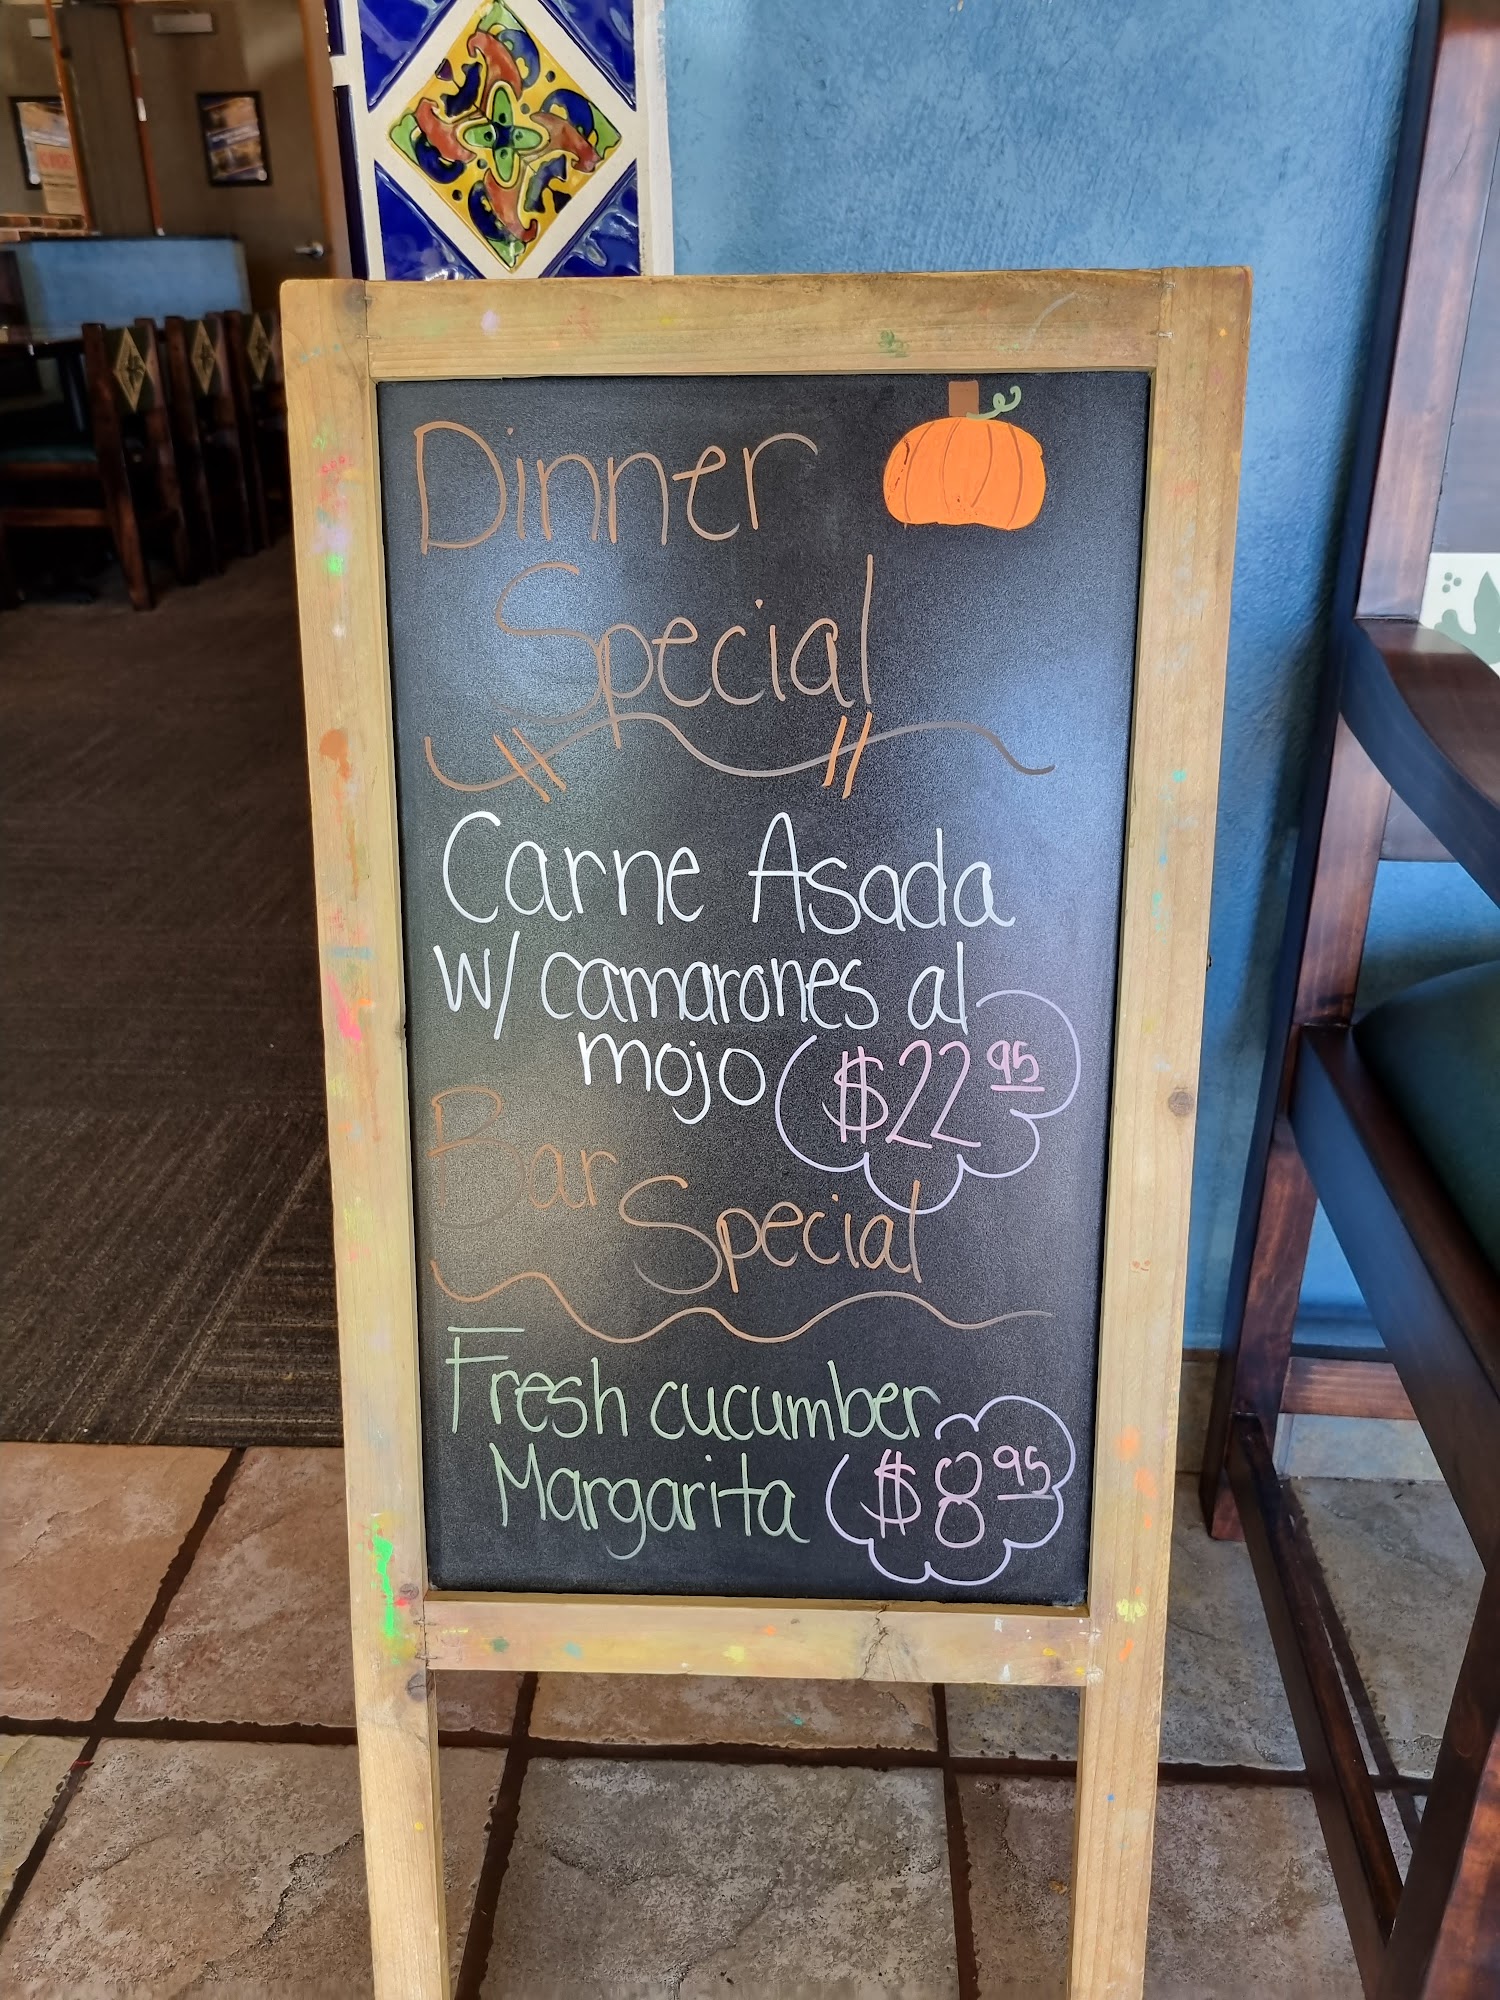 Dinner
Special
Carne Asada
w/ camarones al
mojo $22 95
Bar Special
Fresh cucumber
Margarita $8 95